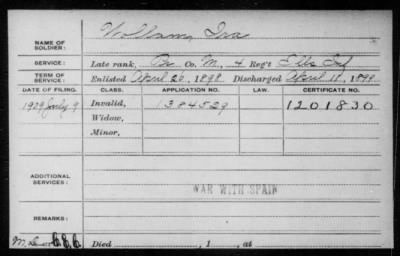 NAME OF SOLDIER: Williams, Ira
SERVICE: Late rank, Pr. Co. M, 4 Reg't Ills Inf
TERM OF SERVICE: Enlisted April 26, 1898 Discharged April 11, 1899
DATE OF FILING. CLASS. APPLICATION NO. LAW. CERTIFICATE NO.
1929 July 9 Invalid, 1384529 1201830
Widow,
Minor,
ADDITIONAL SERVICES:
WAR WITH SPAIN
REMARKS:
Died , 1 , at